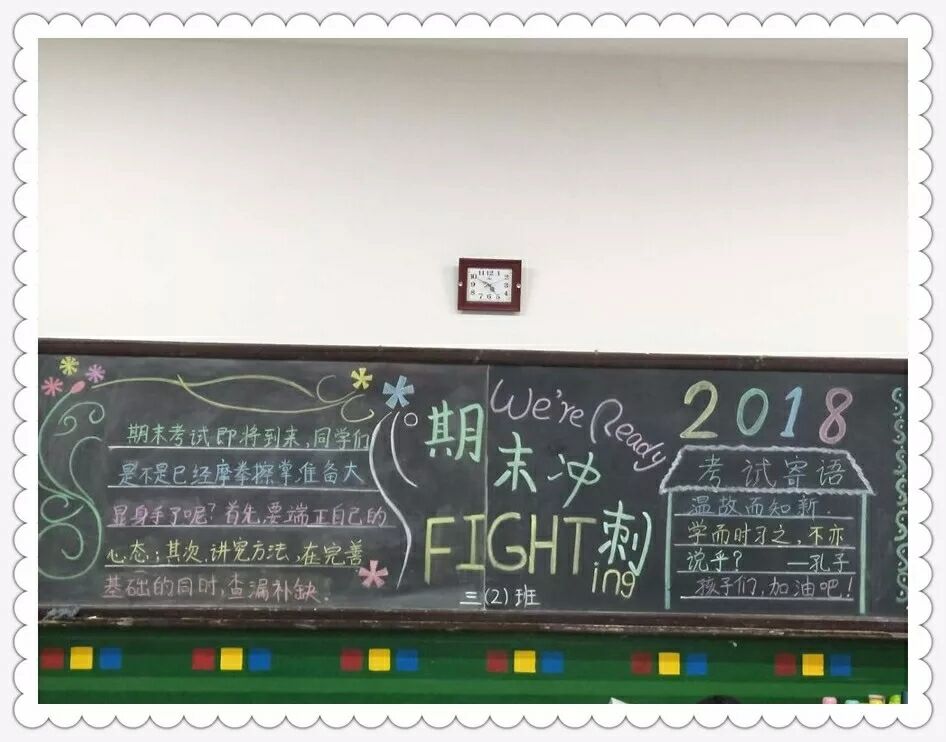 11 12 1
10 2
9 3
8 4
7 6 5
期末考试即将到来,同学们
是不是已经摩拳擦掌准备大
显身手了呢?首先,要端正自己的
心态;其次,讲究方法,在完善
基础的同时,查漏补缺.
We're Ready
期末冲刺
FIGHTing
三(2)班
2018
考试寄语
温故而知新.
学而时习之,不亦
说乎? —孔子
孩子们,加油吧!